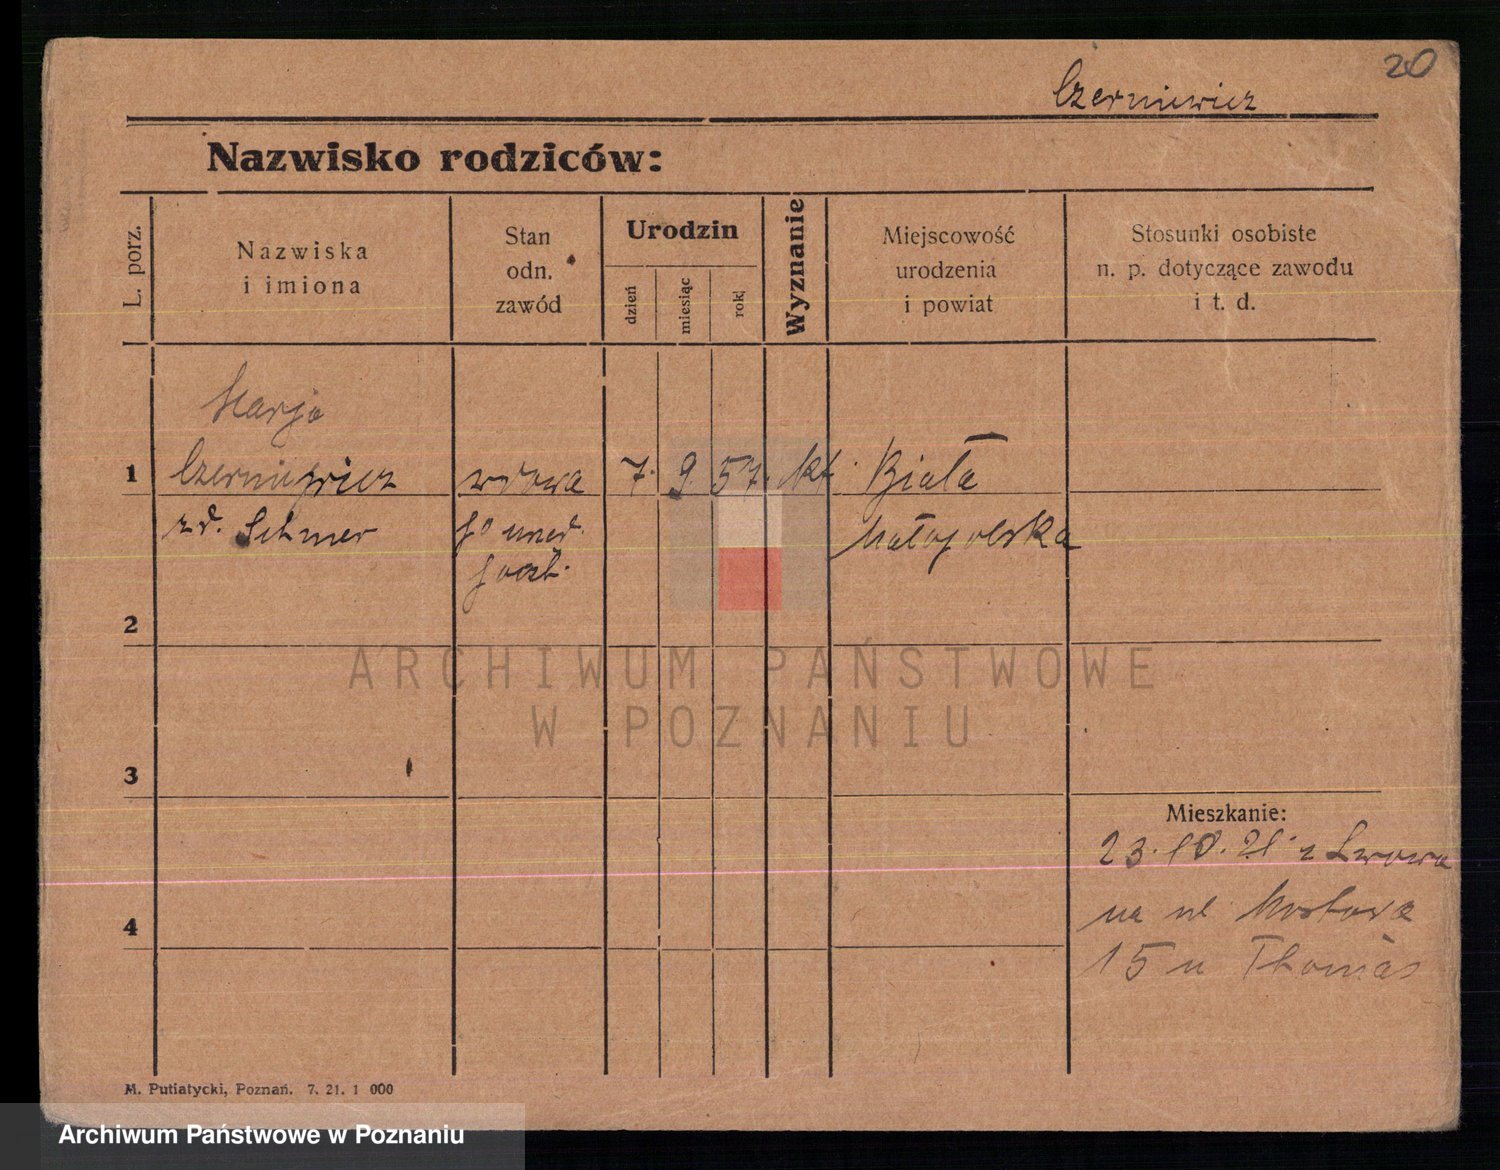 20
Czerniewicz
Nazwisko rodziców:
L. porz.
Nazwiska
i imiona
Stan
odn.
zawód
Urodzin
dzień
miesiąc
rok
Wyznanie
Miejscowość
urodzenia
i powiat
Stosunki osobiste
n. p. dotyczące zawodu
i t. d.
Marja
1 Czerniewicz wdowa 7. 9. 57. kt. Biała
zd. po Małopolska
2
ARCHIWUM PAŃSTWOWE
W POZNANIU
3
Mieszkanie:
23. 10. 21. z Lwowa
4 na ul Mostowa
15 u Thomas
M. Putiatycki, Poznań. 7. 21. 1 000
Archiwum Państwowe w Poznaniu